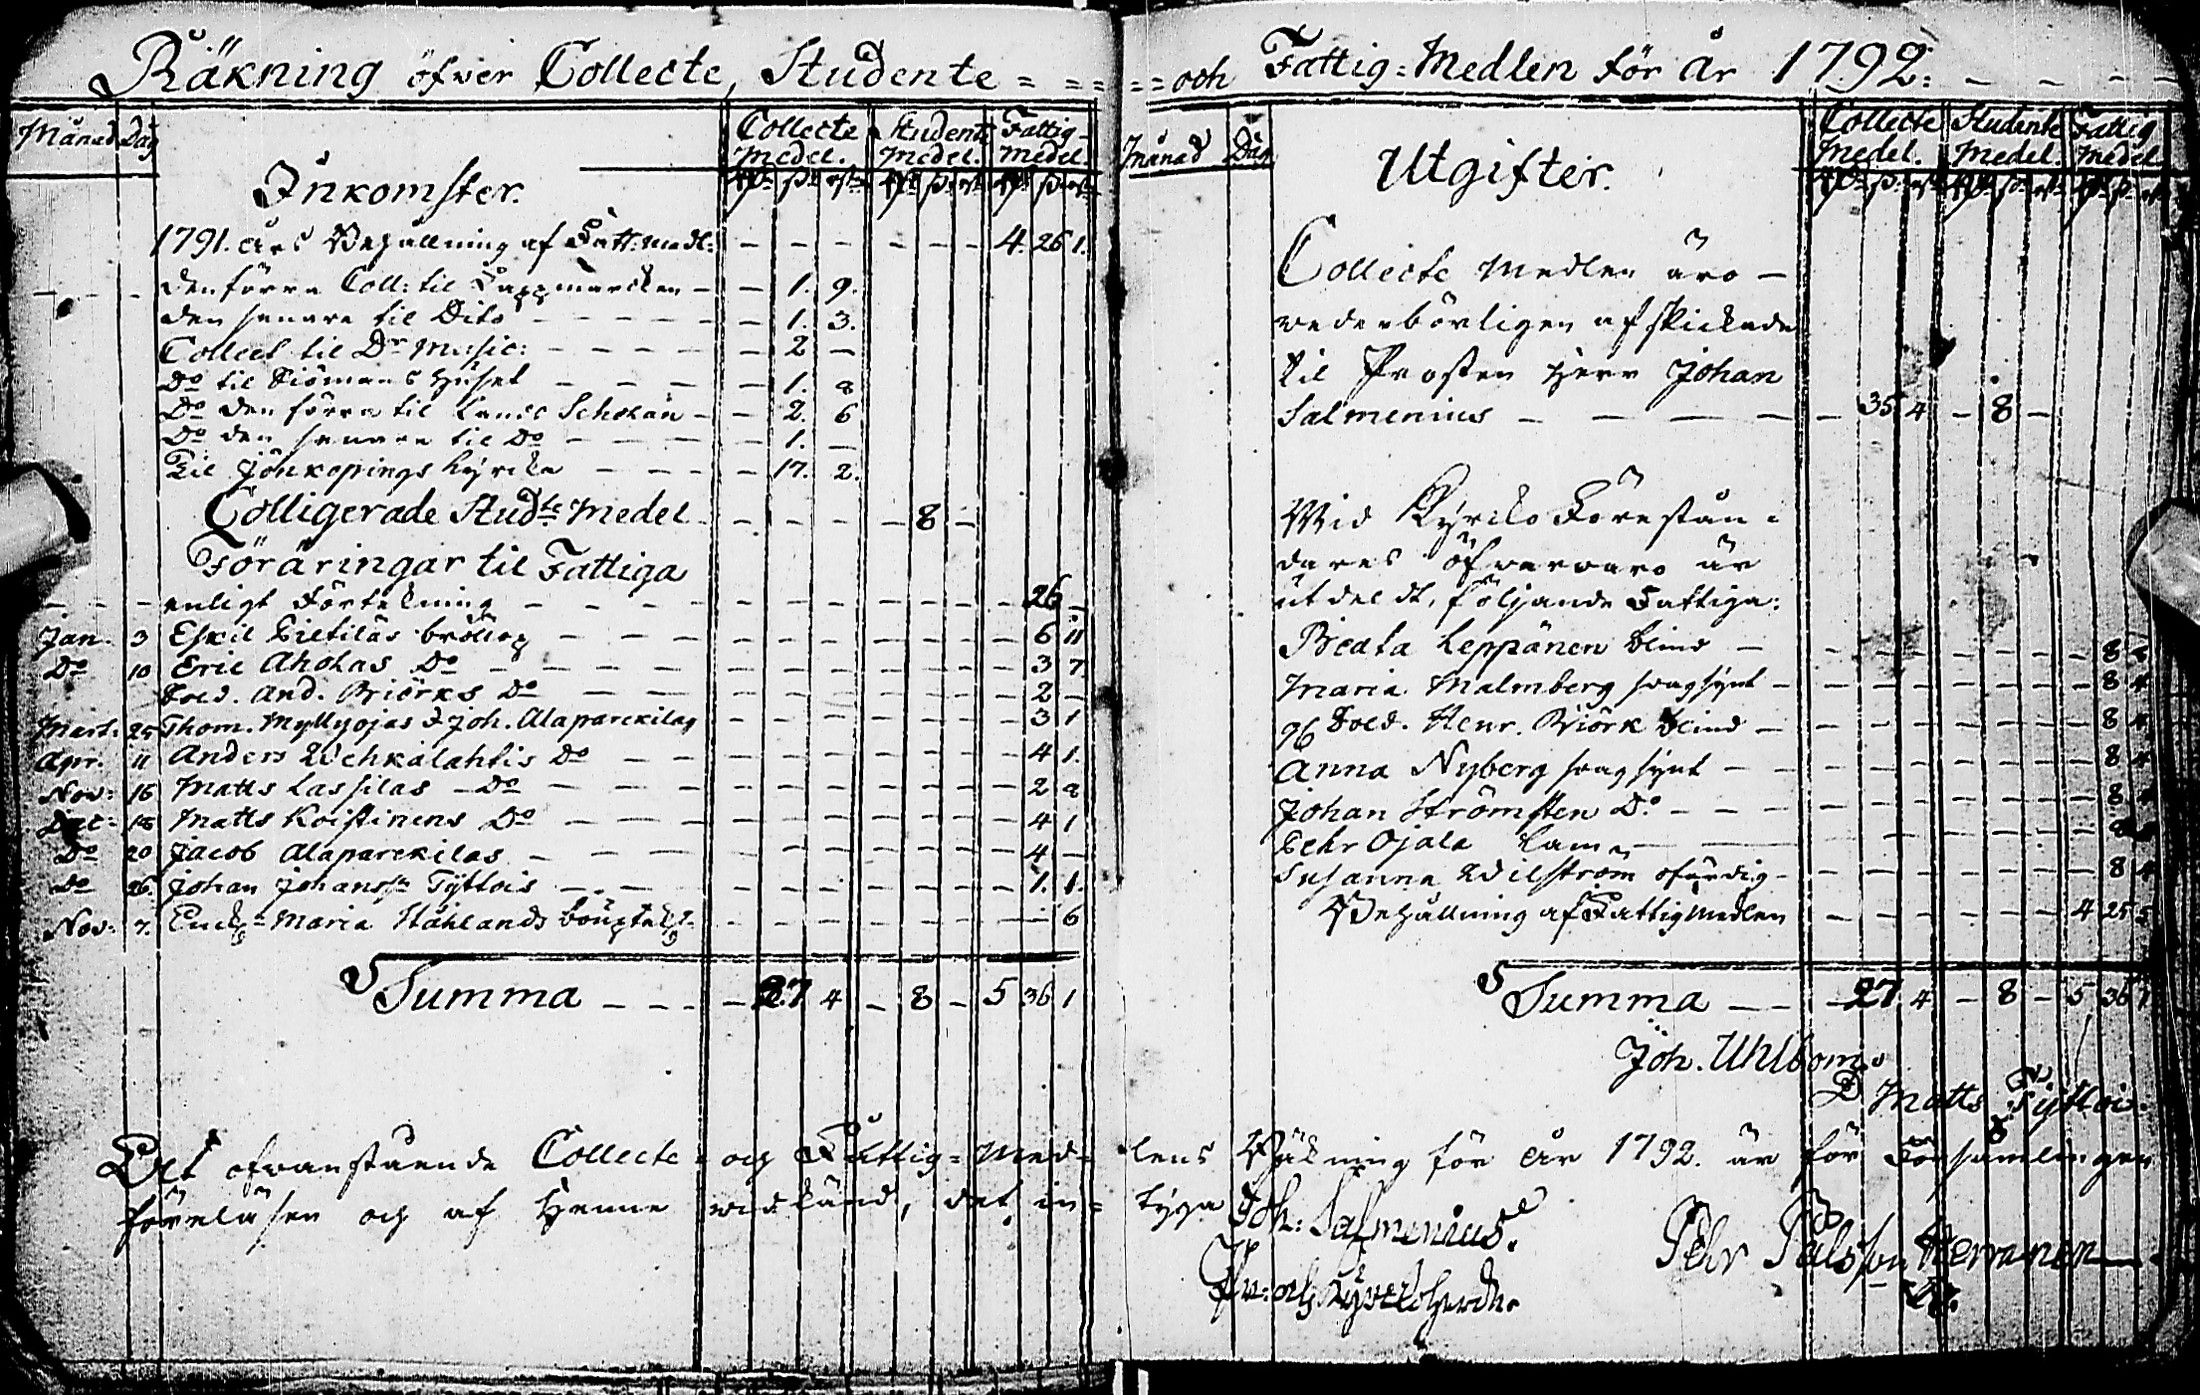 Räkning öfver Collecte, Studente = = =
Månad Dag Collecte Medel. Studente Medel. Fattig-Medel.
Inkomster.
1791. års Behållning af Fatt: medl: - - - - - - 4. 26 1.
den förra Coll: til Lappmarcken - - 1. 9.
den senare til Dito - - - - - - 1. 3.
Collect til Dr Music: - - - - - 2 -
Do til Siömans Huset - - - - 1. 8
Do den förra til Lands Scholan - - 2. 6
Do den senare til Do - - - - 1. -
Til Jönkopings kyrcka - - - - - 17. 2.
Colligerade Studte Medel - - - - - 8 -
Föräringar til Fattiga
enligt Förtekning - - - - - - - - - 26 -
Jan. 3 Eskil Pietiläs bröllop - - - - - - - 6 11
Do 10 Eric Aholas Do - - - - - - - 3 7
Sold. And. Biörks Do - - - - - - - 2 -
Mart: 25 Thom. Myllyojas & Joh. Alaparckilas - - - - - - 3 1
Apr. 11 Anders Wehkalahtis Do - - - - - - 4 1.
Nov: 16 Matts Lassilas Do - - - - - - 2 8
Dec: 18 Matts Koistinens Do - - - - - - 4 1
Do 20 Jacob Alaparckilas - - - - - - - 4 -
Do 26. Johan Johanss. Tyttois - - - - - - 1. 1.
Nov: 7. Enck. Maria Ståhlands - - - - - - 6
Summa - - - - 27 4 - 8 - 5 36 1
Det ofvanstående Collecte- och Fattig-Med-
föreläsen och af Henne vidkänd, det in-
= = och Fattig-Medlen för år 1792: - - - -
Månad Dag Collecte Medel. Studente Medel. Fattig Medel
Utgifter.
Collecte Medlen äro -
vederbörligen afskickade
til Prosten Herr Johan
Salmenius - - - - - 35 4 - 8 -
Wid Kyrcko Förestån-
dares öfvervaro är
utdeldt, följande Fattiga:
Beata Leppänen blind - - - - - - - 8 4
Maria Malmberg svagsynt - - - - - - 8 4
Sold. Henr. Biörk blind - - - - - - 8 4
Anna Nyberg svagsynt - - - - - - 8 4
Johan Strömsten Do - - - - - - 8 4
Pehr Ojala lam - - - - - - 8 4
Susanna Wilstrom ofärdig - - - - - - 8 4
Behållning af Fattigmedlen - - - - - - 4 25 5
Summa - - - 27 4 - 8 - 5 36 1
Joh. Uhlbom.
Matts Tyttoi.
lens Räkning för år 1792. är för Församlingen
tyga Joh: Salmenius.
Pr: och Kyrckoherde.
Pehr Pålsson Hervanen